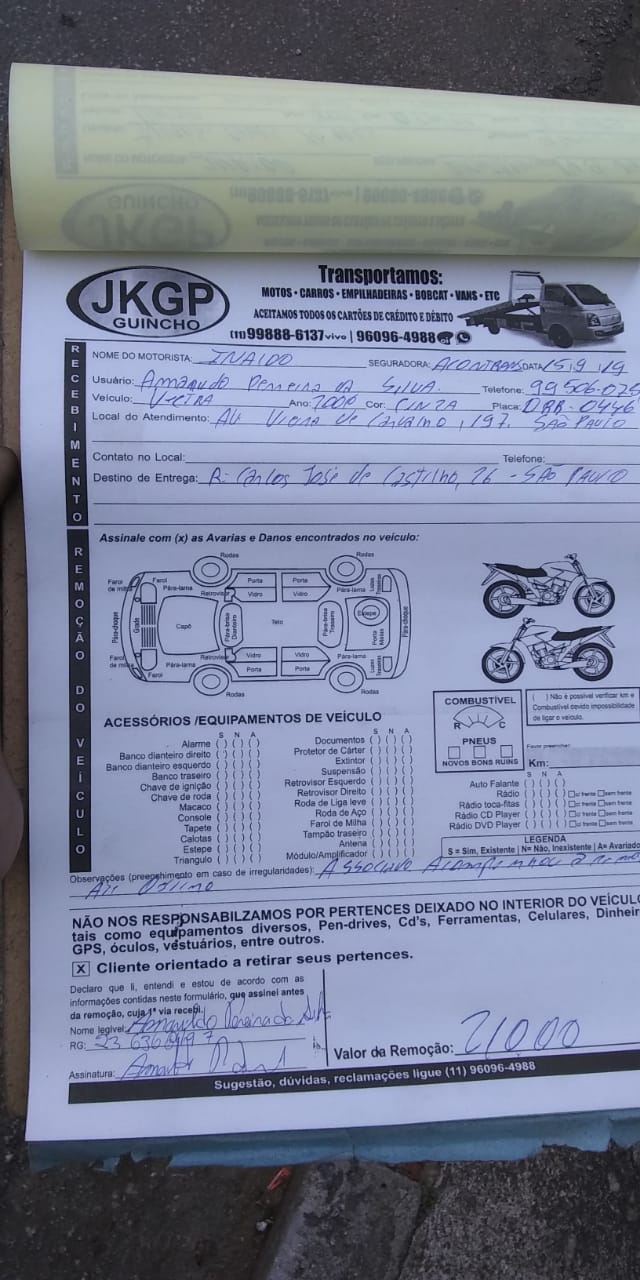 JKGP
GUINCHO
Transportamos:
MOTOS • CARROS • EMPILHADEIRAS • BOBCAT • VANS • ETC
ACEITAMOS TODOS OS CARTÕES DE CRÉDITO E DÉBITO
(11) 99888-6137 vivo | 96096-4988
RECEBIMENTO
NOME DO MOTORISTA: INALDO SEGURADORA: DATA 15/9/19
Usuário: Telefone: 99506-075
Veículo: VECTRA Ano: 2008 Cor: CINZA Placa: 0446
Local do Atendimento: AV. Vieira de Carvalho, 197. SÃO PAULO
Contato no Local: Telefone:
Destino de Entrega: R: Carlos José de Castilho, 26 - SÃO PAULO
REMOÇÃO DO VEÍCULO
Assinale com (x) as Avarias e Danos encontrados no veículo:
Rodas Rodas
Farol de milha Farol Pára-lama Retrovisor Porta Porta Pára-lama Luzes Traseiras
Vidro Vidro
Pára-choque Grade Capô Pára-brisa Dianteiro Teto Pára-brisa Traseiro Estepe Porta Malas Pára-choque
Farol de milha Farol Pára-lama Retrovisor Vidro Vidro Pára-lama Luzes Traseiras
Porta Porta
Rodas Rodas
ACESSÓRIOS /EQUIPAMENTOS DE VEÍCULO
S N A
Alarme ( ) ( ) ( )
Banco dianteiro direito ( ) ( ) ( )
Banco dianteiro esquerdo ( ) ( ) ( )
Banco traseiro ( ) ( ) ( )
Chave de ignição ( ) ( ) ( )
Chave de roda ( ) ( ) ( )
Macaco ( ) ( ) ( )
Console ( ) ( ) ( )
Tapete ( ) ( ) ( )
Calotas ( ) ( ) ( )
Estepe ( ) ( ) ( )
Triangulo ( ) ( ) ( )
S N A
Documentos ( ) ( ) ( )
Protetor de Cárter ( ) ( ) ( )
Extintor ( ) ( ) ( )
Suspensão ( ) ( ) ( )
Retrovisor Esquerdo ( ) ( ) ( )
Retrovisor Direito ( ) ( ) ( )
Roda de Liga leve ( ) ( ) ( )
Roda de Aço ( ) ( ) ( )
Farol de Milha ( ) ( ) ( )
Tampão traseiro ( ) ( ) ( )
Antena ( ) ( ) ( )
Módulo/Amplificador ( ) ( ) ( )
COMBUSTÍVEL
R C
PNEUS
NOVOS BONS RUINS
( ) Não é possível verificar km e
Combustível devido impossibilidade
de ligar o veículo.
Favor preencher:
Km:
S N A
Auto Falante ( ) ( ) ( )
Rádio ( ) ( ) ( ) c/ frente sem frente
Rádio toca-fitas ( ) ( ) ( ) c/ frente sem frente
Rádio CD Player ( ) ( ) ( ) c/ frente sem frente
Rádio DVD Player ( ) ( ) ( ) c/ frente sem frente
LEGENDA
S = Sim, Existente | N= Não, Inexistente | A= Avariado
Observações (preenchimento em caso de irregularidades):
NÃO NOS RESPONSABILZAMOS POR PERTENCES DEIXADO NO INTERIOR DO VEÍCUL
tais como equipamentos diversos, Pen-drives, Cd's, Ferramentas, Celulares, Dinhei
GPS, óculos, vestuários, entre outros.
X Cliente orientado a retirar seus pertences.
Declaro que li, entendi e estou de acordo com as
informações contidas neste formulário, que assinei antes
da remoção, cuja 1ª via recebi.
Nome legível:
RG:
Assinatura:
Valor da Remoção: 210,00
Sugestão, dúvidas, reclamações ligue (11) 96096-4988